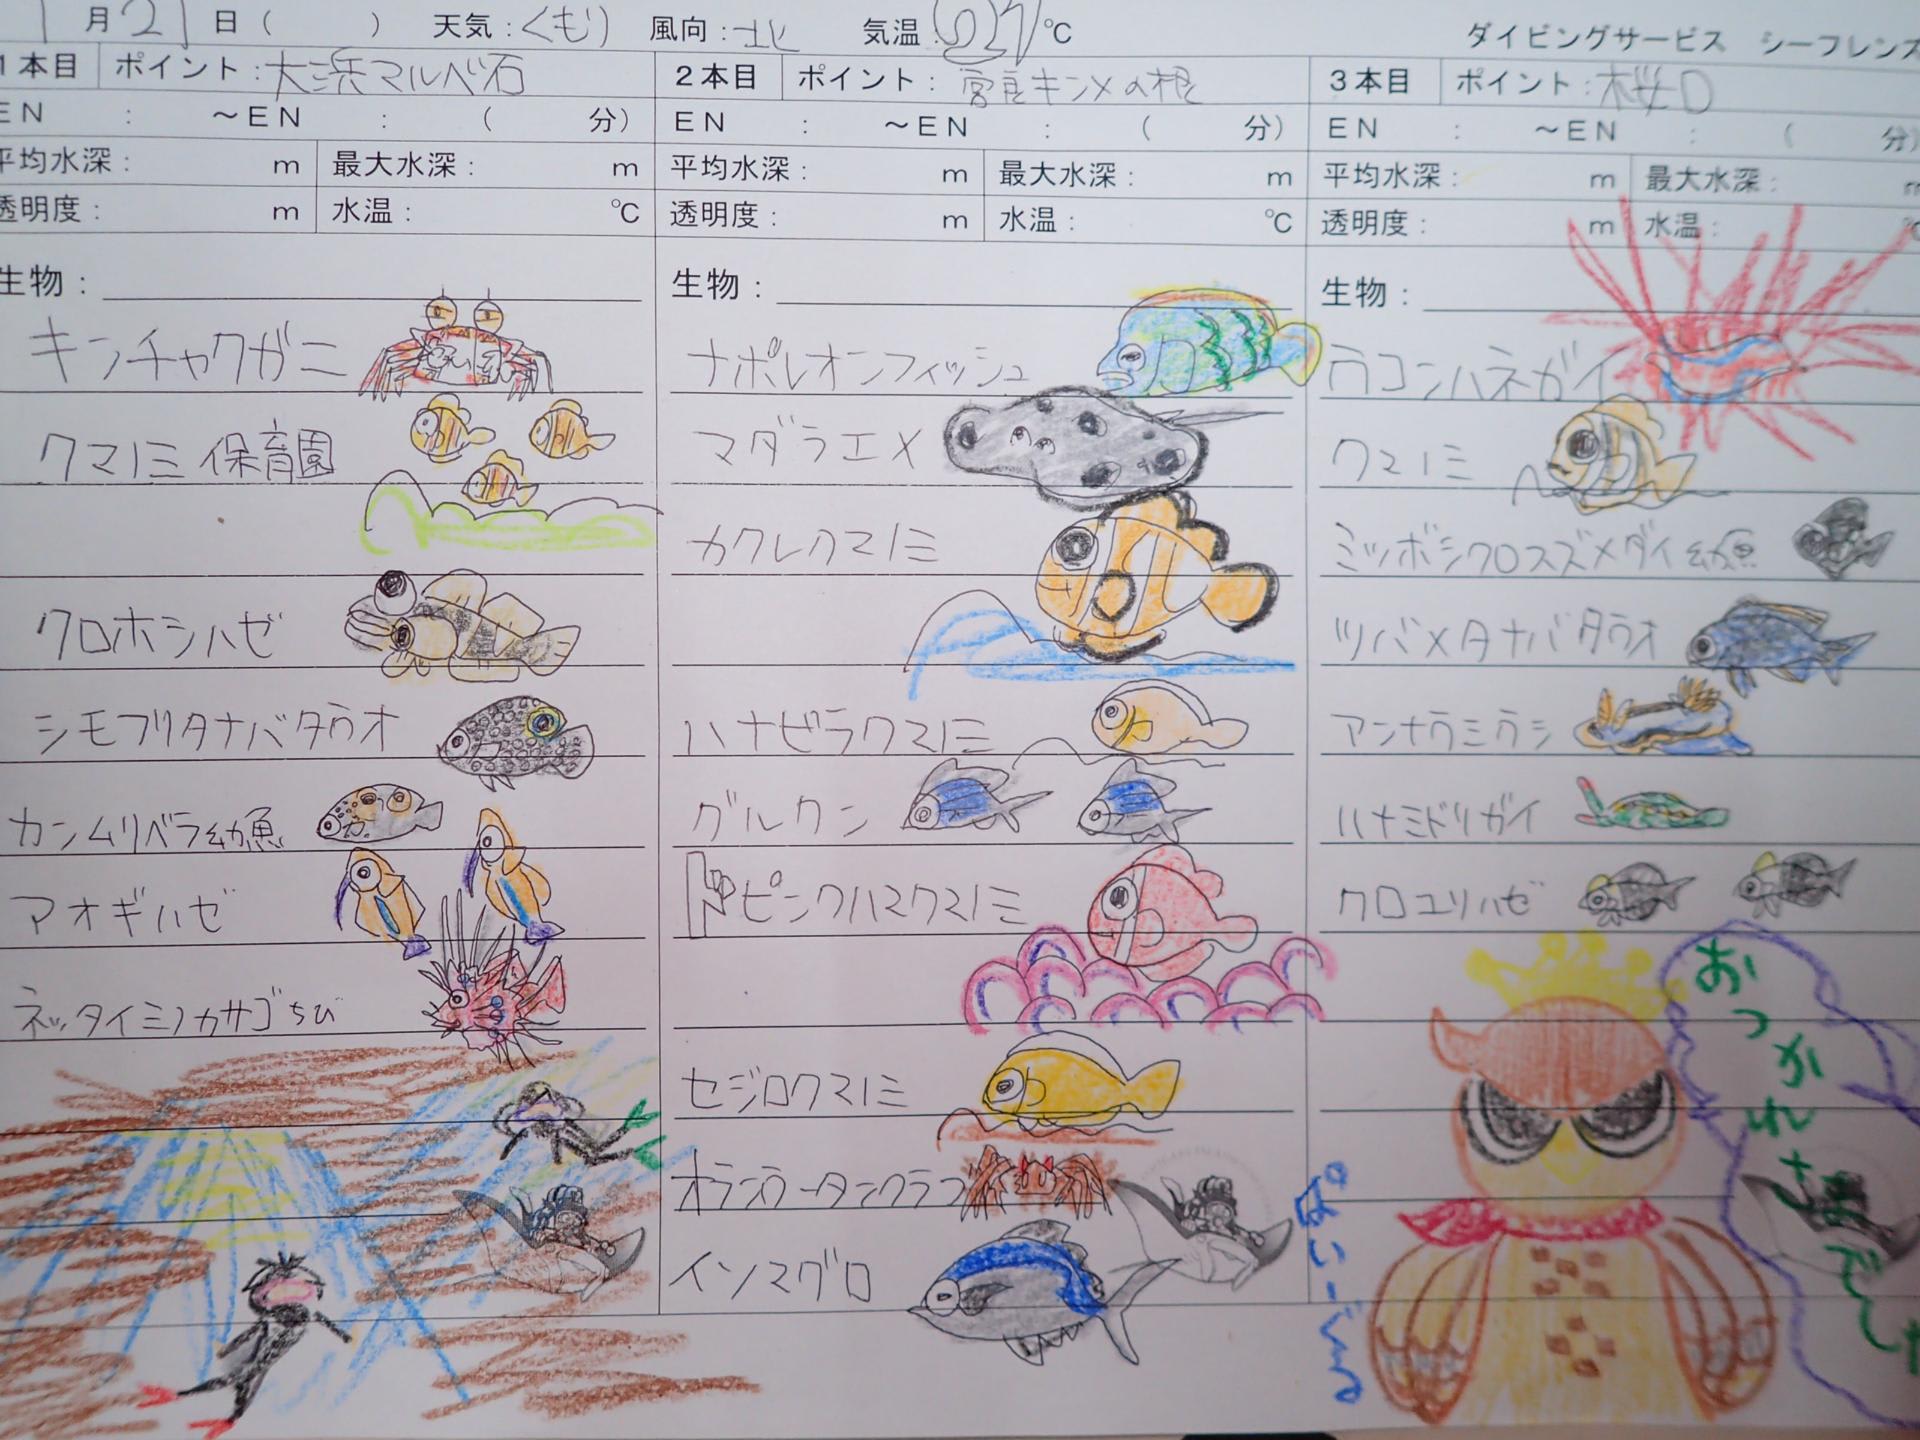 1月21日（　　）　天気：くもり　風向：北　気温：27℃
ダイビングサービス　シーフレンズ
1本目　ポイント：大浜マルベ石
EN　：　～EN　：　（　　分）
平均水深：　　m　最大水深：　　m
透明度：　　m　水温：　　℃
生物：
キンチャクガニ
クマノミ保育園
クロホシハゼ
シモフリタナバタウオ
カンムリベラ幼魚
アオギハゼ
ネッタイミノカサゴちび
2本目　ポイント：宮良キンメの根
EN　：　～EN　：　（　　分）
平均水深：　　m　最大水深：　　m
透明度：　　m　水温：　　℃
生物：
ナポレオンフィッシュ
マダラエメ
カクレクマノミ
ハナビラクマノミ
グルクン
ドピンクハマクマノミ
セジロクマノミ
オランウータンクラブ
イソマグロ
3本目　ポイント：桜口
EN　：　～EN　：　（　　分）
平均水深：　　m　最大水深：　　m
透明度：　　m　水温：　　℃
生物：
ウコンハネガイ
クマノミ
ミツボシクロスズメダイ幼魚
ツバメタナバタウオ
アンナウミウシ
ハナミドリガイ
クロユリハゼ
おつかれさまでした